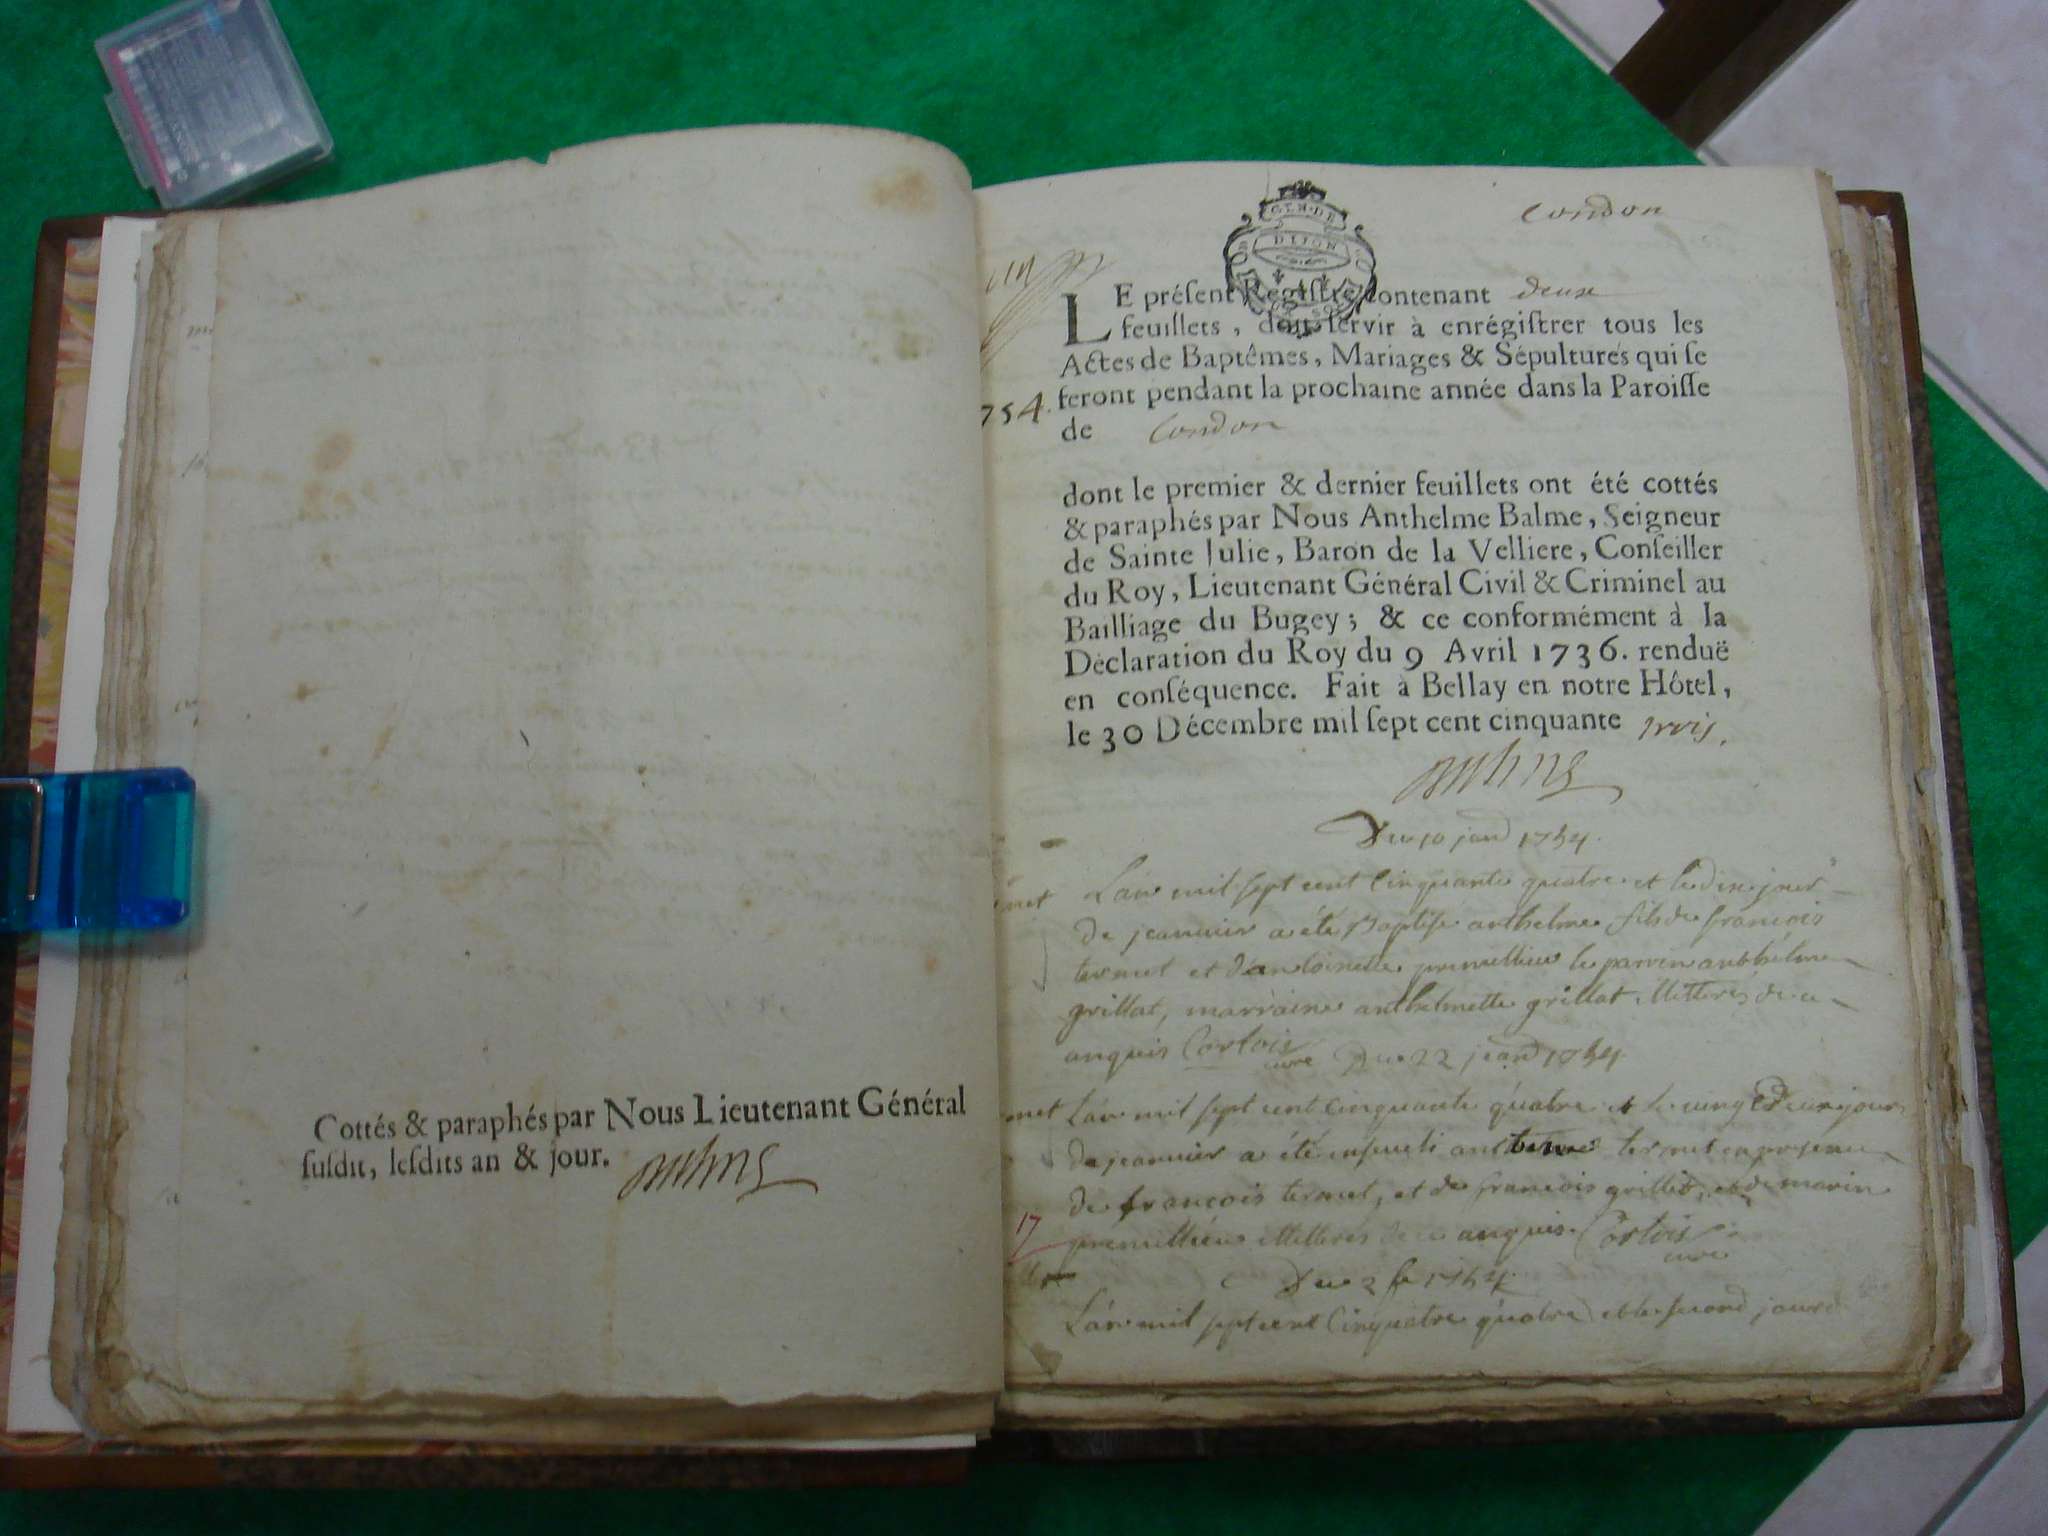 Cottés & paraphés par Nous Lieutenant Général
ſuſdit, leſdits an & jour.
GEN. DE
DIJON
Condon
LE préſent Regiſtre contenant deux
feuillets, doit ſervir à enrégiſtrer tous les
Actes de Baptêmes, Mariages & Sépultures qui ſe
feront pendant la prochaine année dans la Paroiſſe
754.
de Condon
dont le premier & dernier feuillets ont été cottés
& paraphés par Nous Anthelme Balme, Seigneur
de Sainte Julie, Baron de la Velliere, Conſeiller
du Roy, Lieutenant Général Civil & Criminel au
Bailliage du Bugey; & ce conformément à la
Déclaration du Roy du 9 Avril 1736. renduë
en conſéquence. Fait à Bellay en notre Hôtel,
le 30 Décembre mil ſept cent cinquante trois.
Du 10 janv 1754.
L'an mil sept cent cinquante quatre et le dix jour
de jeanvier a été Baptisé anthelme fils de françois
termet et d'antoinette premillieu le parrin anthelme
grillat, marraine anthelmette grillat illitterés de ce
enquis Cortois
curé Du 22 jeanv 1754
L'an mil sept cent cinquante quatre et le vingt deux jour
de jeanvier a été enseveli anthelme termet en presence
de françois termet, et de francois grillet, et de marin
premillieu illitterés de ce enquis. Cortois
curé
17
Du 2 fe 1754
L'an mil sept cent cinquatre quatre et le second jour d